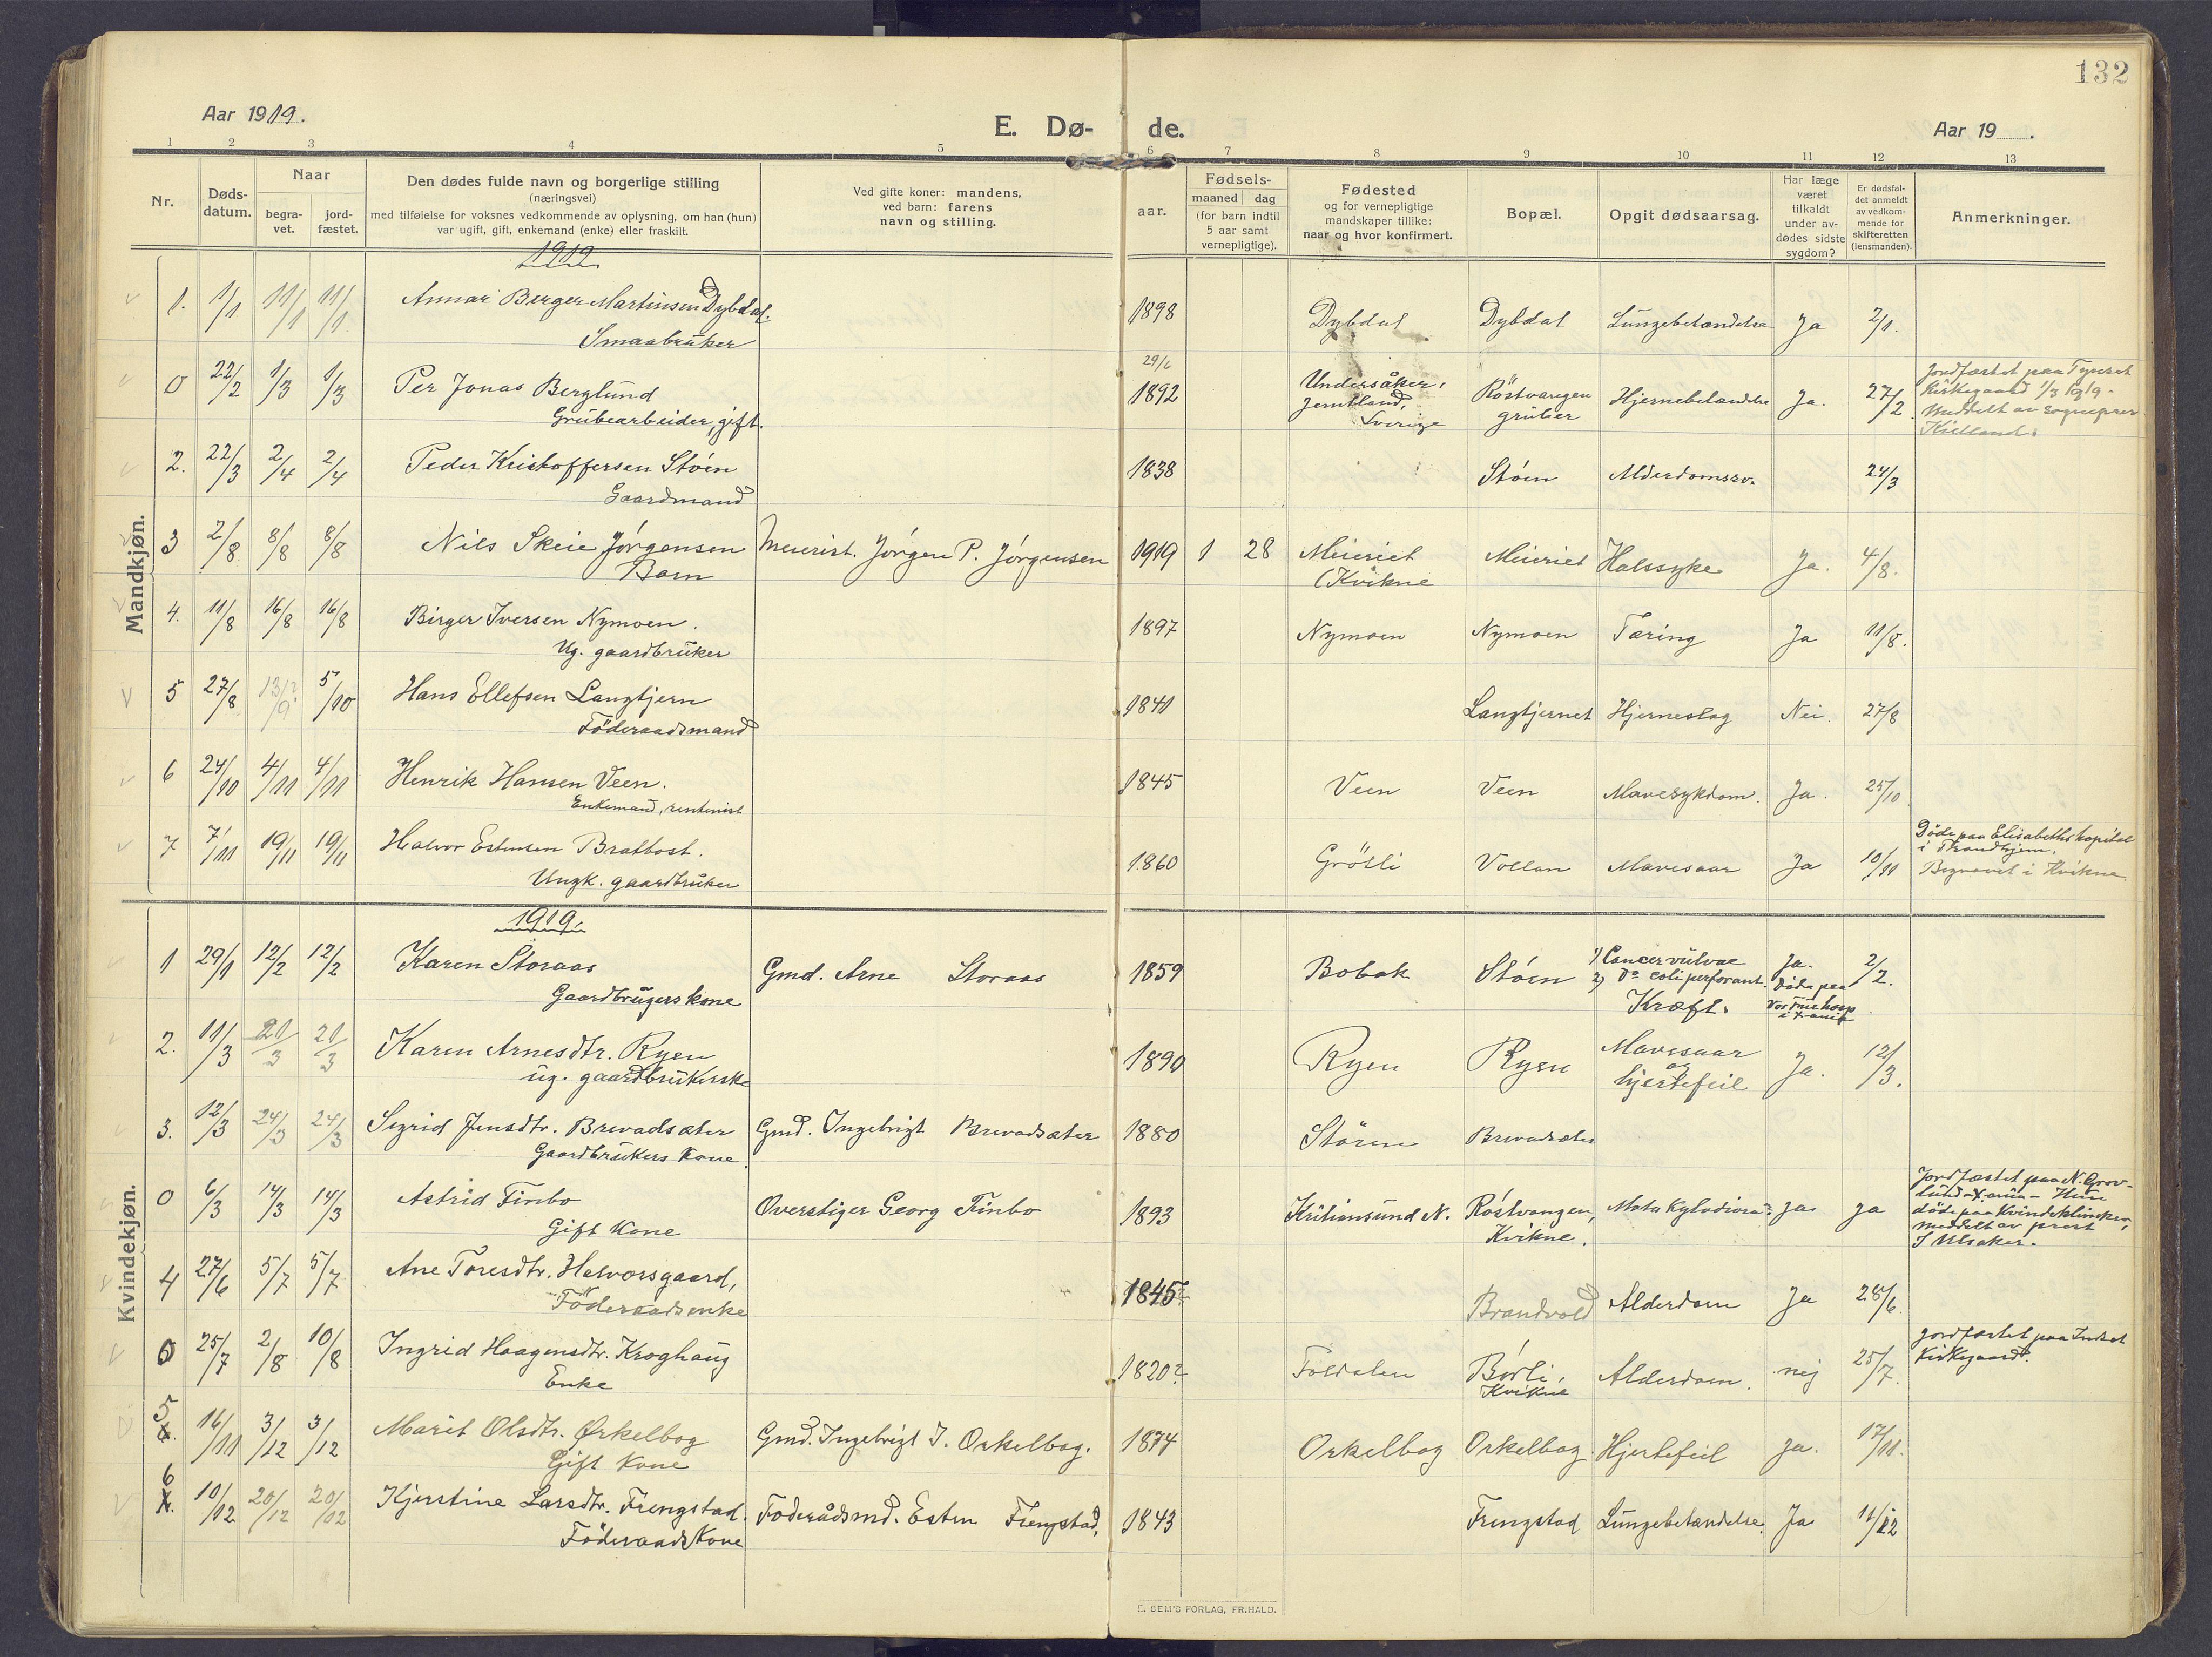 132
Aar 1919.
E. Dø- de.
Aar 19 .
1 2 3 4 5 6 7 8 9 10 11 12 13
Nr.
Døds-
datum.
Naar
begra-
vet.
jord-
fæstet.
Den dødes fulde navn og borgerlige stilling
(næringsvei)
med tilføielse for voksnes vedkommende av oplysning, om han (hun)
var ugift, gift, enkemand (enke) eller fraskilt.
Ved gifte koner: mandens,
ved barn: farens
navn og stilling.
aar.
Fødsels-
maaned dag
(for barn indtil
5 aar samt
vernepligtige).
Fødested
og for vernepligtige
mandskaper tillike:
naar og hvor konfirmert.
Bopæl.
Opgit dødsaarsag.
Har læge
været
tilkaldt
under av-
dødes sidste
sygdom?
Er dødsfal-
det anmeldt
av vedkom-
mende for
skifteretten
(lensmanden).
Anmerkninger.
Mandkjøn.
1919
1. 1/1 11/1 11/1 Annar Berger Martinsen Dybdal. 1898 Dybdal Dybdal Lungebetændelse Ja 2/1.
Smaabruker
0 22/2 1/3 1/3 Per Jonas Berglund 29/6 1892 Undersåker, Röstvangen Hjernebetændelse Ja. 27/2.
Grubearbeider, gift. Jemtland, gruber
Sverige
Jordfæstet paa Tynset
Kirkegaard 1/3 1919.
Meddelt av sogneprest
Kielland.
2. 22/3 2/4 2/4 Peder Kristoffersen Stóen 1838 Stóen Alderdomssv. 24/3
Gaardmand
3 2/8 8/8 8/8 Nils Skeie Jórgensen Meierist. Jórgen P. Jórgensen 1919 1 28 Meieriet Meieriet Halssyke Ja. 4/8.
Barn (Kvikne
4. 11/8 16/8 16/8 Birger Iversen Nymoen. 1897 Nymoen Nymoen Tæring Ja 11/8.
Ug. gaardbruker
5 27/8 13/9? 5/10 Hans Ellefsen Langtjern 1841 Langtjernet Hjerneslag Nei. 27/8
Föderaadsmand
6 24/10 4/11 4/11 Henrik Hansen Veen. 1845 Veen Veen Mavesykdom. Ja. 25/10
Enkemand, rentenist
7 7/11 19/11 19/11 Halvor Estensen Brattost. 1860 Grötli Vollan Mavesaar Ja 10/11
Ungk. gaardbruker
Döde paa Elisabeths hospital
i Trondhjem.
Begravet i Kvikne
Kvindekjøn.
1919.
1 29/1 12/2 12/2 Karen Storaas Gmd. Arne Storaas 1859 Bobak Stóen 1) Cancer vulvae Ja. 2/2.
Gaardbrugers kone 2) Do coli perforant. Döde paa
Kræft.
2. 11/3 21/3 21/3 Karen Arnesdtr. Ryen 1890 Ryen Ryen Mavesaar Ja. 12/3.
ug. gaardbrukerske og
hjertefeil
3. 12/3 24/3 24/3 Sigrid Jensdtr. Brevadsæter Gmd. Ingebrigt Brevadsæter 1880 Stören Brevadsæter
Gaardbrukers kone.
0 6/3 14/3 14/3 Astrid Finbo Overstiger Georg Finbo 1893 Kristiansund N. Róstvangen, ja. ja
Gift kone Kvikne.
Jordfæstet paa N. Grav-
lund - X.ania - Hun
döde paa Kvindeklinikken,
meddelt av prest
J Ulsaker.
4 27/6 5/7 5/7 Ane Toresdtr. Halvorsgaard, 1845? Brandvold Alderdom Ja 28/6.
Föderaadsenke
0 25/7 2/8 10/8 Ingrid Haagensdtr. Kroghaug 1820? Foldalen Bórli, Alderdom. nej 25/7.
Enke Kvikne
Jordfæstet paa Indset
Kirkegaard.
5 16/11 3/12 3/12 Marit Olsdtr. Ørkelbog Gmd. Ingebrigt J. Orkelbog. 1874 Orkelbog Orkelbog. Hjertefeil Ja. 17/11.
Gift kone
6 10/12 20/12 20/12 Kjerstine Larsdtr. Frengstad. Foderådsmd. Esten Frengstad. 1843 Frengstad Lungebetændelse. Ja 11/12
Föderaadskone
E. SEM'S FORLAG, FR.HALD.